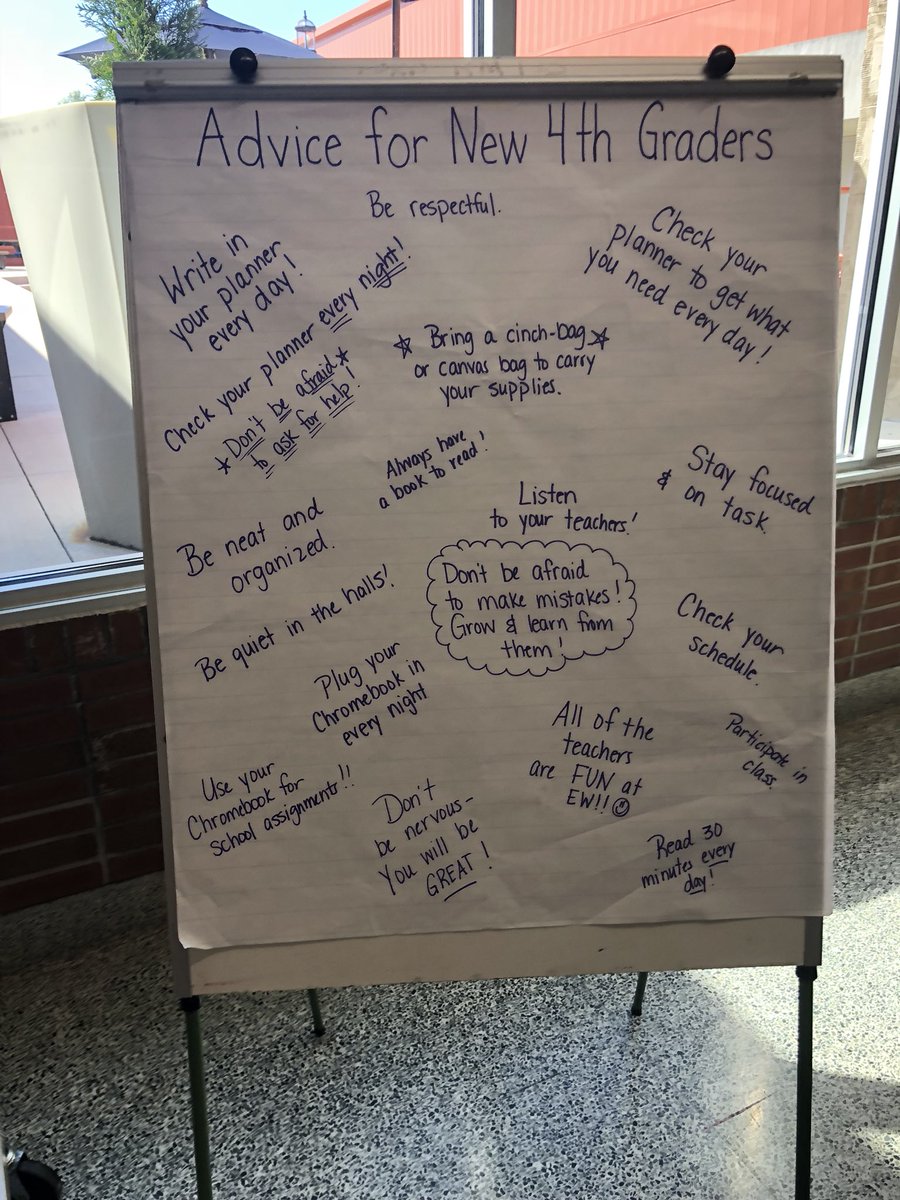 Advice for New 4th Graders
Be respectful.
Write in
your planner
every day!
Check your
planner to get what
you need every day!
Check your planner every night!
☆ Bring a cinch-bag ☆
or canvas bag to carry
your supplies.
☆ Don't be afraid ☆
to ask for help!
Always have
a book to read!
Stay focused
& on task.
Listen
to your teachers!
Be neat and
organized.
Don't be afraid
to make mistakes!
Grow & learn from
them!
Be quiet in the halls!
Check your
schedule.
Plug your
Chromebook in
every night
All of the
teachers
are FUN at
EW!! ☺
Participate in
class.
Use your
Chromebook for
school assignments!!
Don't
be nervous-
You will be
GREAT!
Read 30
minutes every
day!